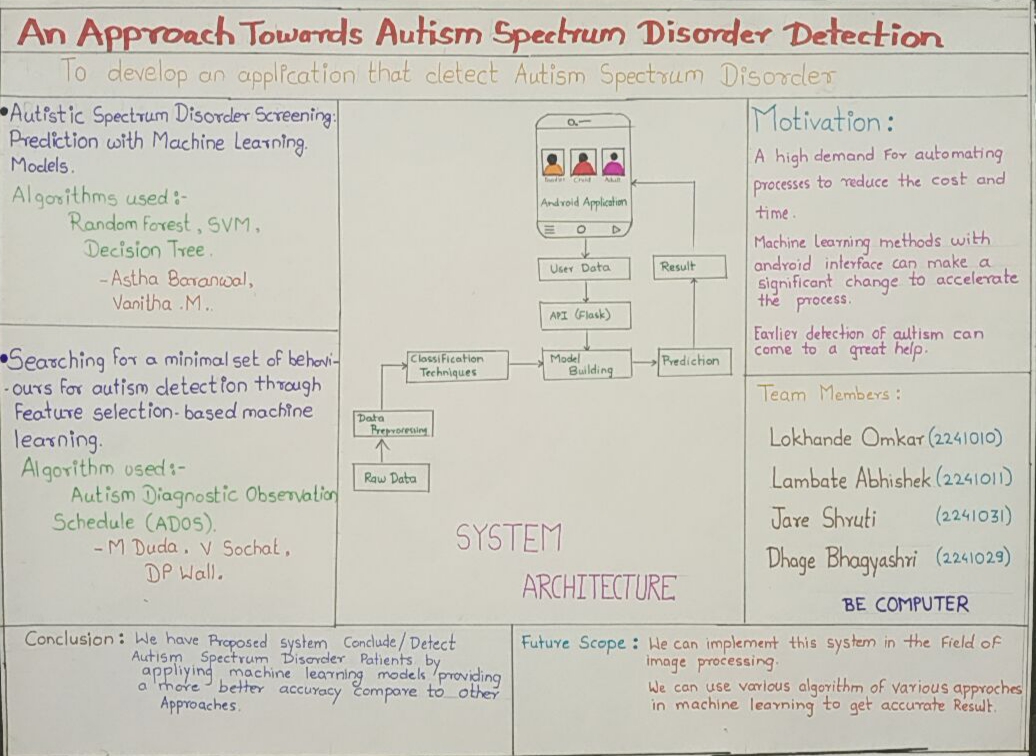 An Approach Towards Autism Spectrum Disorder Detection
To develop an application that detect Autism Spectrum Disorder
•Autistic Spectrum Disorder Screening:
Prediction with Machine Learning.
Models.
Algorithms used:-
Random Forest, SVM,
Decision Tree.
-Astha Baranwal,
Vanitha .M..
•Searching for a minimal set of behavi-
-ours for autism detection through
Feature selection-based machine
learning.
Algorithm used:-
Autism Diagnostic Observation
Schedule (ADOS).
-M Duda, V Sochat,
DP Wall.
Toodler Child Adult
Android Application
User Data
Result
API (Flask)
Classification
Techniques
Model
Building
Prediction
Data
Preprocessing
Raw Data
SYSTEM
ARCHITECTURE
Motivation:
A high demand For automating
processes to reduce the cost and
time.
Machine learning methods with
android interface can make a
significant change to accelerate
the process.
Earlier detection of autism can
come to a great help.
Team Members:
Lokhande Omkar (2241010)
Lambate Abhishek (2241011)
Jare Shruti (2241031)
Dhage Bhagyashri (2241029)
BE COMPUTER
Conclusion: We have Proposed system Conclude/Detect
Autism Spectrum Disorder Patients by
appliying machine learning models providing
a more better accuracy compare to other
Approaches.
Future Scope: We can implement this system in the Field of
image processing.
We can use various algorithm of various approches
in machine learning to get accurate Result.